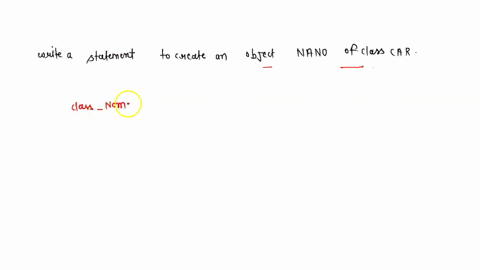 write a statement to create an object NANO of class CAR.
class_Nam